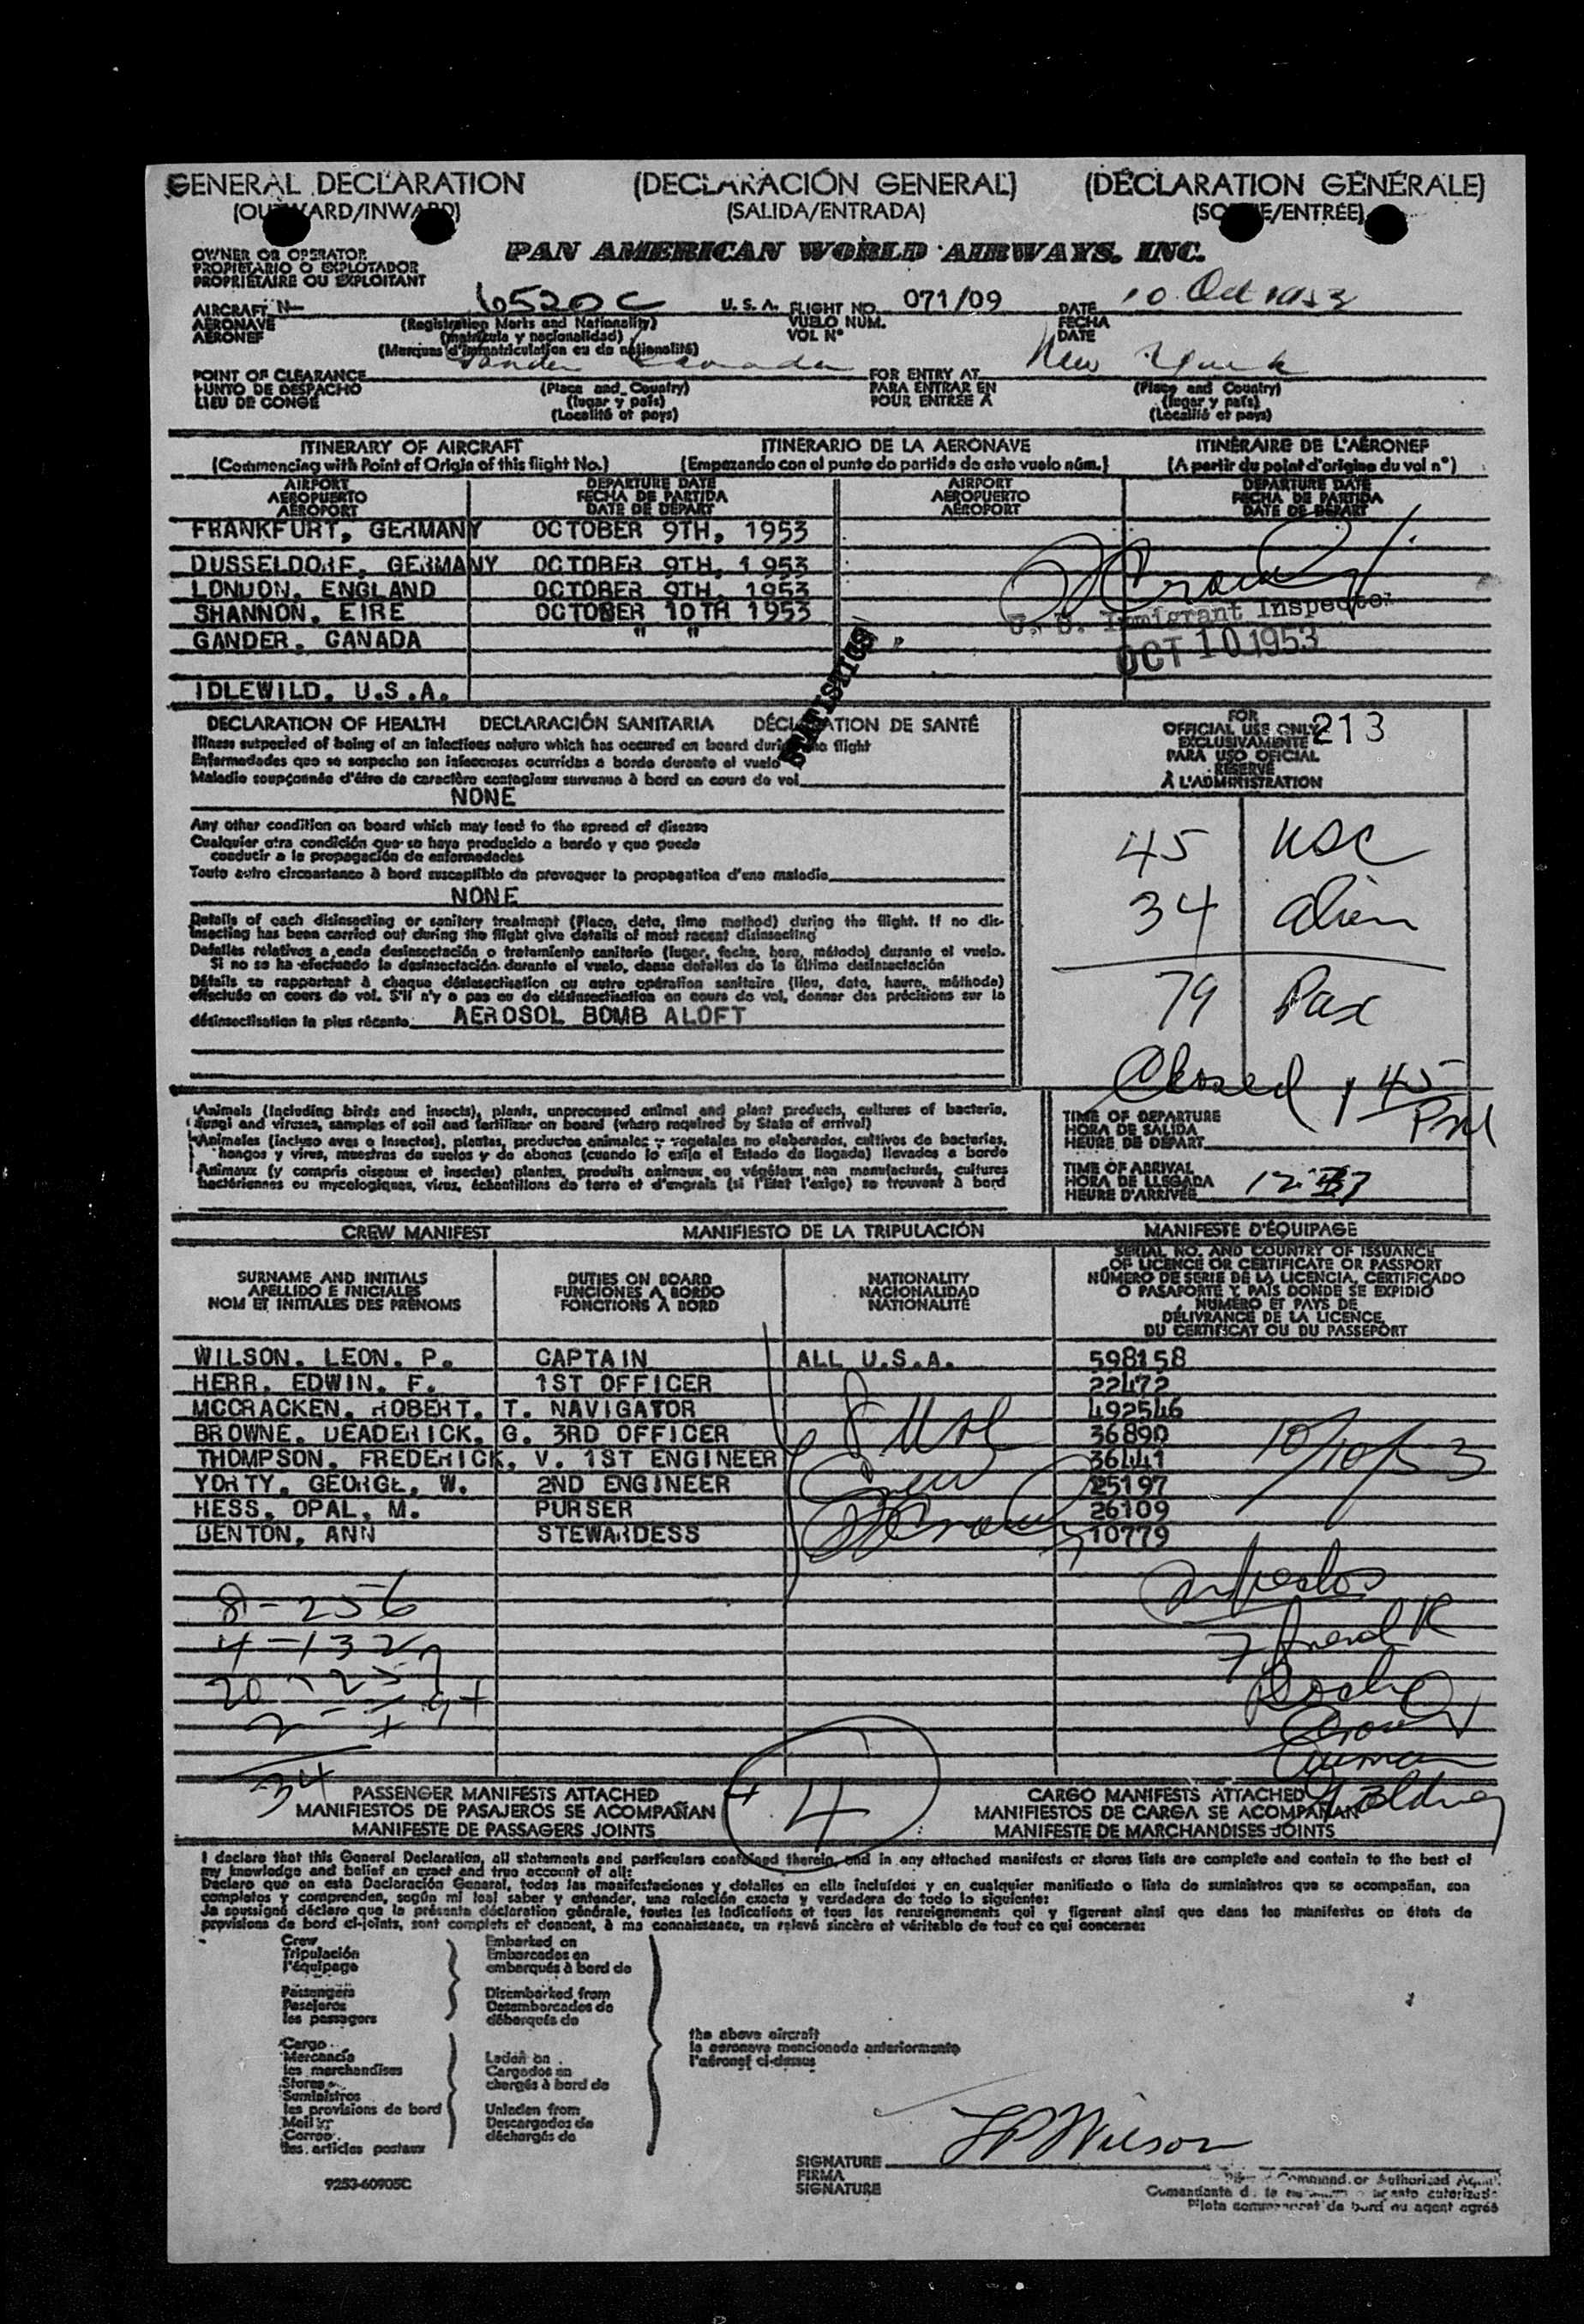 GENERAL DECLARATION (DECLARACIÓN GENERAL) (DÉCLARATION GÉNÉRALE)
(OUTWARD/INWARD) (SALIDA/ENTRADA) (SORTIE/ENTRÉE)
OWNER OR OPERATOR
PROPIETARIO O EXPLOTADOR
PROPRIÉTAIRE OU EXPLOITANT
PAN AMERICAN WORLD AIRWAYS, INC.
AIRCRAFT N- 6520C U. S. A. FLIGHT NO. 071/09 DATE 10 Oct 1953
AERONAVE (Registration Marks and Nationality) VUELO NÚM. FECHA
AÉRONEF (matrícula y nacionalidad) VOL N° DATE
(Marques d'immatriculation ou de nationalité)
POINT OF CLEARANCE Gander Canada FOR ENTRY AT New York
PUNTO DE DESPACHO (Place and Country) PARA ENTRAR EN (Place and Country)
LIEU DE CONGÉ (lugar y país) POUR ENTRÉE À (lugar y país)
(Localité et pays) (Localité et pays)
ITINERARY OF AIRCRAFT ITINERARIO DE LA AERONAVE ITINÉRAIRE DE L'AÉRONEF
(Commencing with Point of Origin of this flight No.) (Empezando con el punto de partida de este vuelo núm.) (A partir du point d'origine du vol n°)
AIRPORT DEPARTURE DATE AIRPORT DEPARTURE DATE
AEROPUERTO FECHA DE PARTIDA AEROPUERTO FECHA DE PARTIDA
AÉROPORT DATE DE DÉPART AÉROPORT DATE DE DÉPART
FRANKFURT, GERMANY OCTOBER 9TH, 1953
DUSSELDORF, GERMANY OCTOBER 9TH, 1953
LONDON, ENGLAND OCTOBER 9TH, 1953
SHANNON, EIRE OCTOBER 10TH 1953
U. S. Immigrant Inspector
GANDER, CANADA " "
OCT 10 1953
IDLEWILD, U.S.A.
STATISTICS
DECLARATION OF HEALTH DECLARACIÓN SANITARIA DÉCLARATION DE SANTÉ
Illness suspected of being of an infectious nature which has occured on board during the flight
Enfermedades que se sospecha son infecciosas ocurridas a bordo durante el vuelo
Maladie soupçonnée d'être de caractère contagieux survenue à bord en cours de vol
NONE
Any other condition on board which may lead to the spread of disease
Cualquier otra condición que se haya producido a bordo y que puede
conducir a la propagación de enfermedades
Toute autre circonstance à bord susceptible de provoquer la propagation d'une maladie
NONE
Details of each disinsecting or sanitary treatment (Place, date, time method) during the flight. If no dis-
insecting has been carried out during the flight give details of most recent disinsecting
Detalles relativos a cada desinsectación o tratamiento sanitario (lugar, fecha, hora, método) durante el vuelo.
Si no se ha efectuado la desinsectación durante el vuelo, dense detalles de la última desinsectación
Détails se rapportant à chaque désinsectisation ou autre opération sanitaire (lieu, date, heure, méthode)
effectuée en cours de vol. S'il n'y a pas eu de désinsectisation en cours de vol, donner des précisions sur la
désinsectisation la plus récente AEROSOL BOMB ALOFT
FOR
OFFICIAL USE ONLY 213
EXCLUSIVAMENTE
PARA USO OFICIAL
RÉSERVÉ
À L'ADMINISTRATION
45 USC
34 alien
79 Pax
Closed 1 45 PM
Animals (including birds and insects), plants, unprocessed animal and plant products, cultures of bacteria,
fungi and viruses, samples of soil and fertilizer on board (where required by State of arrival)
Animales (incluso aves o insectos), plantas, productos animales y vegetales no elaborados, cultivos de bacterias,
hongos y virus, muestras de suelos y de abonos (cuando lo exija el Estado de llegada) llevados a bordo
Animaux (y compris oiseaux et insectes) plantes, produits animaux ou végétaux non manufacturés, cultures
bactériennes ou mycologiques, virus, échantillons de terre et d'engrais (si l'État l'exige) se trouvant à bord
TIME OF DEPARTURE
HORA DE SALIDA
HEURE DE DÉPART
TIME OF ARRIVAL
HORA DE LLEGADA
HEURE D'ARRIVÉE
CREW MANIFEST MANIFIESTO DE LA TRIPULACIÓN MANIFESTE D'ÉQUIPAGE
SURNAME AND INITIALS
APELLIDO E INICIALES
NOM ET INITIALES DES PRÉNOMS
DUTIES ON BOARD
FUNCIONES A BORDO
FONCTIONS À BORD
NATIONALITY
NACIONALIDAD
NATIONALITÉ
SERIAL NO. AND COUNTRY OF ISSUANCE
OF LICENCE OR CERTIFICATE OR PASSPORT
NÚMERO DE SERIE DE LA LICENCIA, CERTIFICADO
O PASAPORTE Y PAÍS DONDE SE EXPIDIÓ
NUMÉRO ET PAYS DE
DÉLIVRANCE DE LA LICENCE,
DU CERTIFICAT OU DU PASSEPORT
WILSON, LEON, P. CAPTAIN ALL U.S.A. 598158
HERR, EDWIN, F. 1ST OFFICER 22472
MCCRACKEN, ROBERT, T. NAVIGATOR 492546
BROWNE, DEADERICK, G. 3RD OFFICER 36890
THOMPSON, FREDERICK, V. 1ST ENGINEER 36441
YORTY, GEORGE, W. 2ND ENGINEER 25197
HESS, OPAL, M. PURSER 26109
DENTON, ANN STEWARDESS 10779
8 USC
Crew
10/10/53
8 - 256
4 - 132
34
PASSENGER MANIFESTS ATTACHED 4 CARGO MANIFESTS ATTACHED
MANIFIESTOS DE PASAJEROS SE ACOMPAÑAN MANIFIESTOS DE CARGA SE ACOMPAÑAN
MANIFESTE DE PASSAGERS JOINTS MANIFESTE DE MARCHANDISES JOINTS
I declare that this General Declaration, all statements and particulars contained therein, and in any attached manifests or stores lists are complete and contain to the best of
my knowledge and belief an exact and true account of all:
Declaro que en esta Declaración General, todas las manifestaciones y detalles en ella incluídos y en cualquier manifiesto o lista de suministros que se acompañan, son
completos y comprenden, según mi leal saber y entender, una relación exacta y verdadera de todo lo siguiente:
Je soussigné déclare que la présente déclaration générale, toutes les indications et tous les renseignements qui y figurent ainsi que dans les manifestes ou états de
provisions de bord ci-joints, sont complets et donnent, à ma connaissance, un relevé sincère et véritable de tout ce qui concerne:
Crew Embarked on
Tripulación Embarcados en
l'équipage embarqués à bord de
Passengers Disembarked from
Pasajeros Desembarcados de
les passagers débarqués de
the above aircraft
la aeronave mencionada anteriormente
l'aéronef ci-dessus
Cargo
Mercancía Laden on
les marchandises Cargados en
Stores chargés à bord de
Suministros
les provisions de bord Unladen from
Mail Descargados de
Correo déchargés de
les articles postaux
SIGNATURE LP Wilson
FIRMA
SIGNATURE
Command or Authorized Agent
Comandante de la aeronave o agente autorizado
Pilote commandant de bord ou agent agréé
9253-60905C